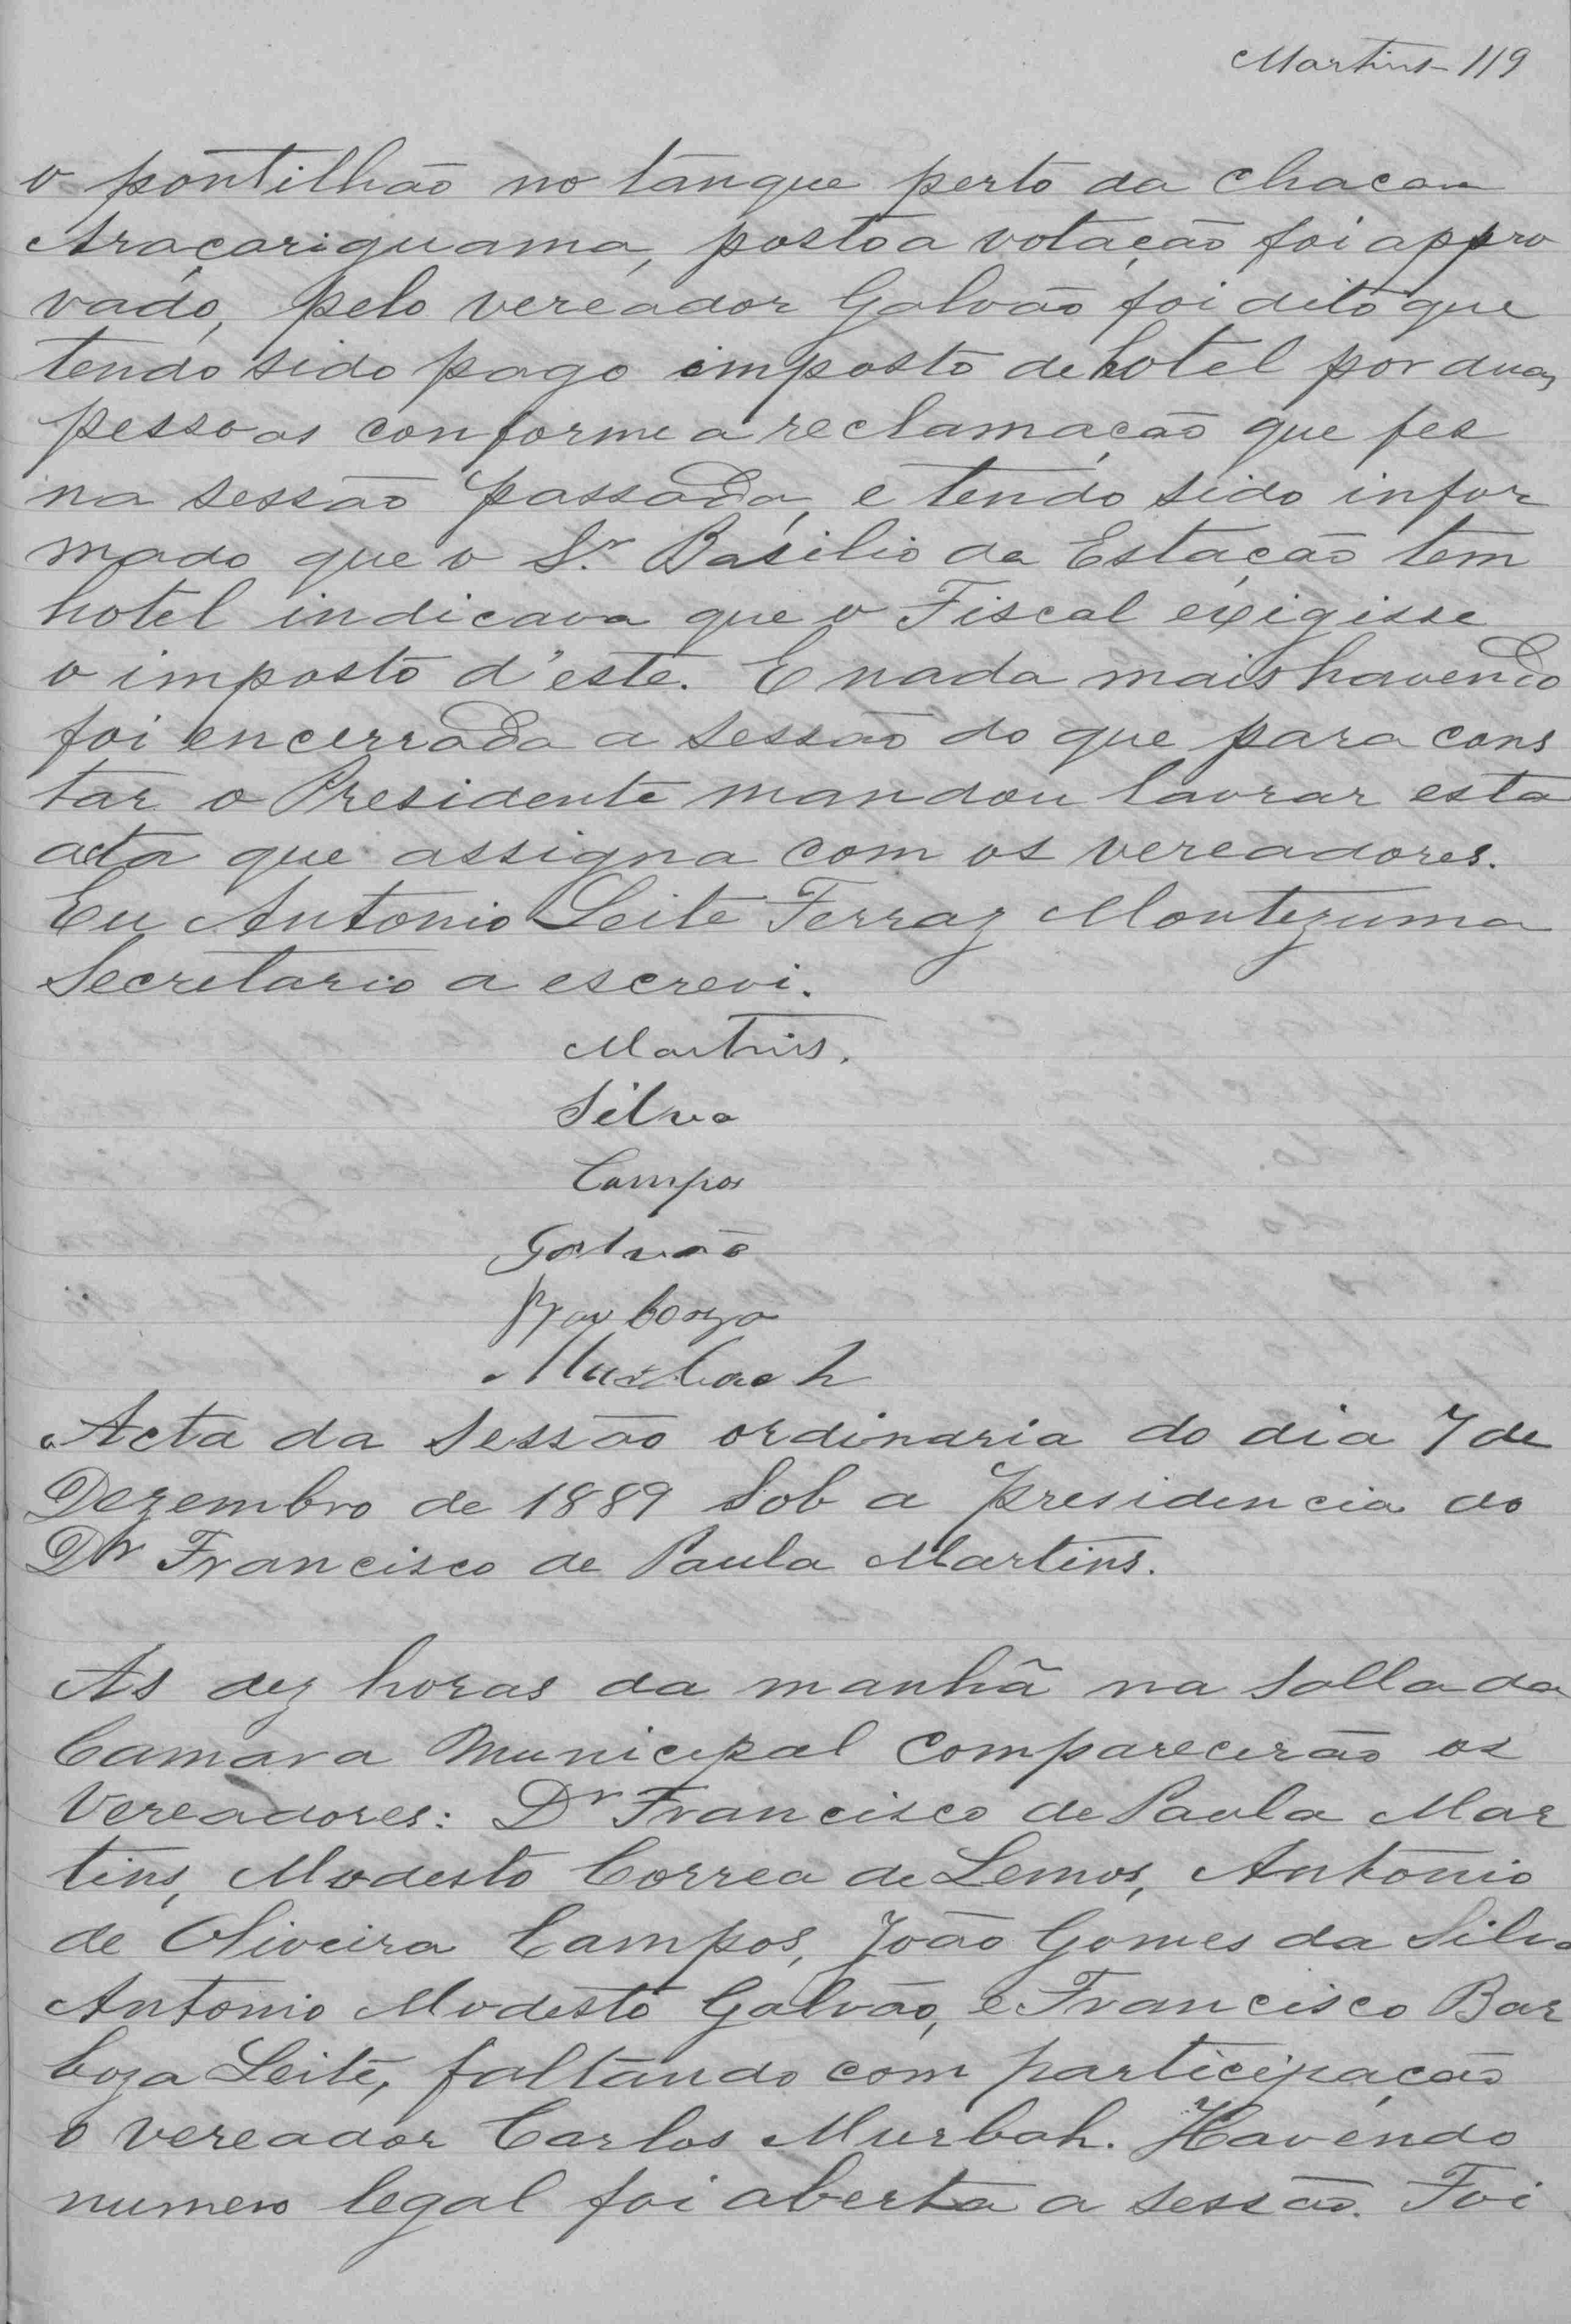 Martins - 119
o pontilhão no tanque perto da chacara
Araçariguama, posto a votação foi appro
vado, pelo vereador Galvão foi dito que
tendo sido pago imposto de hotel por duas
pessoas conforme a reclamação que fes
na sessão passada, e tendo sido infor
mado que o Sr. Basilio da Estação tem
hotel indicava que o Fiscal exigisse
o imposto d'este. E nada mais havendo
foi encerrada a sessão do que para cons
tar o Presidente mandou lavrar esta
acta que assigna com os vereadores.
Eu Antonio Leite Ferraz Montezuma
Secretario a escrevi.
Martins.
Silva
Campos
Galvão
Murbach
Acta da Sessão ordinaria do dia 7 de
Dezembro de 1889 Sob a presidencia do
Dr Francisco de Paula Martins.
As dez horas da manhã na Salla da
Camara Municipal comparecerão os
Vereadores: Dr Francisco de Paula Mar
tins, Modesto Correa de Lemos, Antonio
de Oliveira Campos, João Gomes da Silva
Antonio Modesto Galvão, e Francisco Bar
boza Leite, faltando com participação
o vereador Carlos Murbah. Havendo
numero legal foi aberta a sessão. Foi